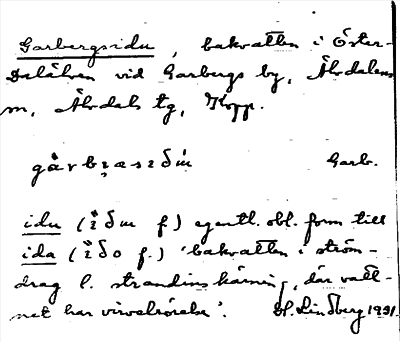 Garbergsidu, bakvatten i Öster-
Dalälven vid Garbergs by, Älvdalens
sn, Älvdals tg, Kopp.
Garb.
idu (ìðu f) egentl. obl. form till
ida (ìðo f.) 'bakvatten i ström-
drag l. strandinskärning, där vatt-
net har virvelrörelse'. H. Lindberg 1931.